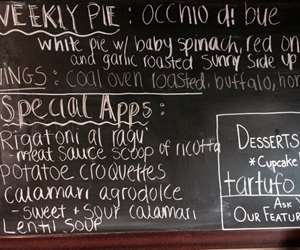 WEEKLY PIE: OCCHIO di bue
white pie w/ baby spinach, red on
and garlic roasted sunny side up
WINGS: coal oven roasted, buffalo, hon
Special Apps:
Rigatoni al ragu
meat sauce scoop of ricotta
potatoe croquettes
Calamari agrodolce
- sweet + sour calamari
Lentil Soup
DESSERTS
*Cupcake
tartufo
ASK
OUR FEATUR